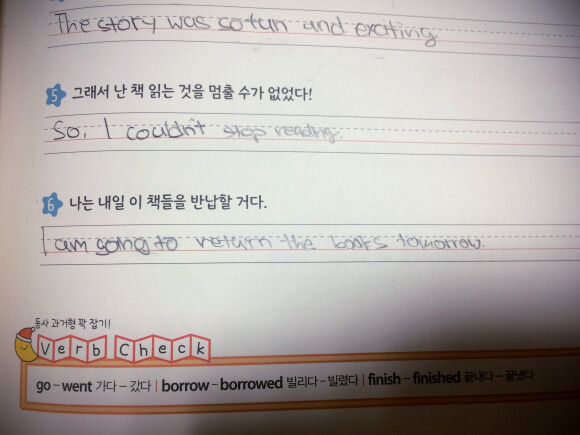 The story was so fun and exciting
5 그래서 난 책 읽는 것을 멈출 수가 없었다!
So, I couldn't stop reading.
6 나는 내일 이 책들을 반납할 거다.
I am going to return the books tomorrow.
동사 과거형 꽉 잡기!
Verb Check
go – went 가다 – 갔다 | borrow – borrowed 빌리다 – 빌렸다 | finish – finished 끝내다 – 끝냈다